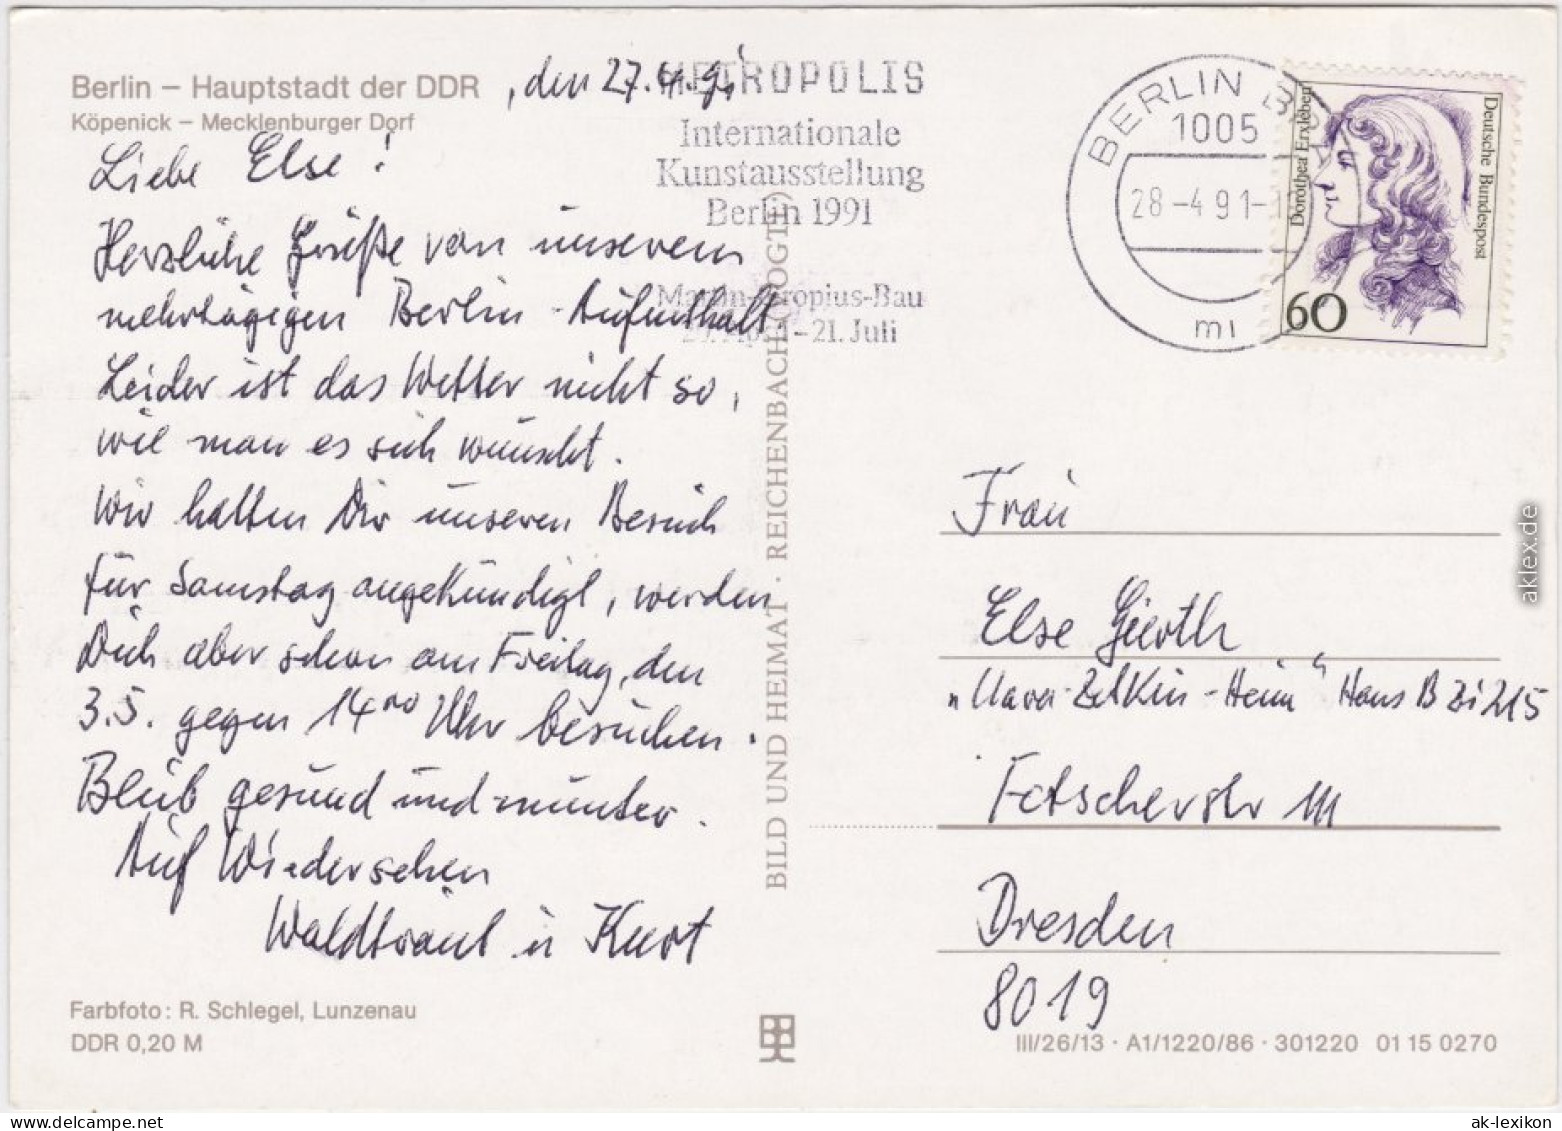 Berlin – Hauptstadt der DDR
Köpenick – Mecklenburger Dorf
, den 27.4.91
Liebe Else!
Herzliche Grüße von unserem
mehrtägigen Berlin-Aufenthalt
Leider ist das Wetter nicht so,
wie man es sich wünscht.
Wir hatten Dir unseren Besuch
für Samstag angekündigt, werden
Dich aber schon am Freitag, den
3.5. gegen 14⁰⁰ Uhr besuchen.
Bleib gesund und munter.
Auf Wiedersehen
Waldtraut u Kurt
Farbfoto: R. Schlegel, Lunzenau
DDR 0,20 M
METROPOLIS
Internationale
Kunstausstellung
Berlin 1991
Martin-Gropius-Bau
-21. Juli
BILD UND HEIMAT · REICHENBACH (VOGTL)
BERLIN
1005
28-4.91-
mi
Dorothea Erxleben
Deutsche Bundespost
60
Frau
Else Gierth
„Clara-Zetkin-Heim“ Haus B Zi 215
Fetscherstr 111
Dresden
8019
III/26/13 · A1/1220/86 · 301220 01 15 0270
aklex.de
ak-lexikon